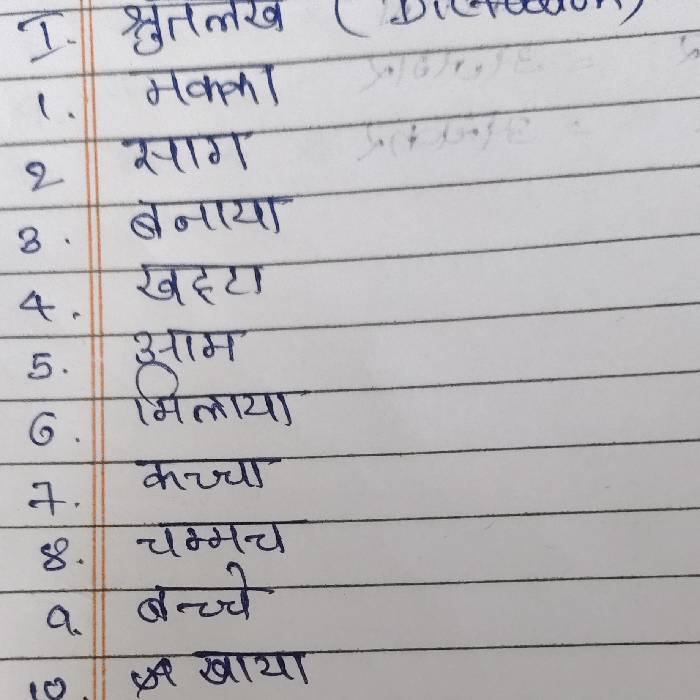 I. श्रुतलेख (Dictation)
1. मक्का
2 साग
3. बनाया
4. खट्टा
5. आम
6. मिलाया
7. कच्चा
8. चम्मच
9. बच्चे
10. खाया